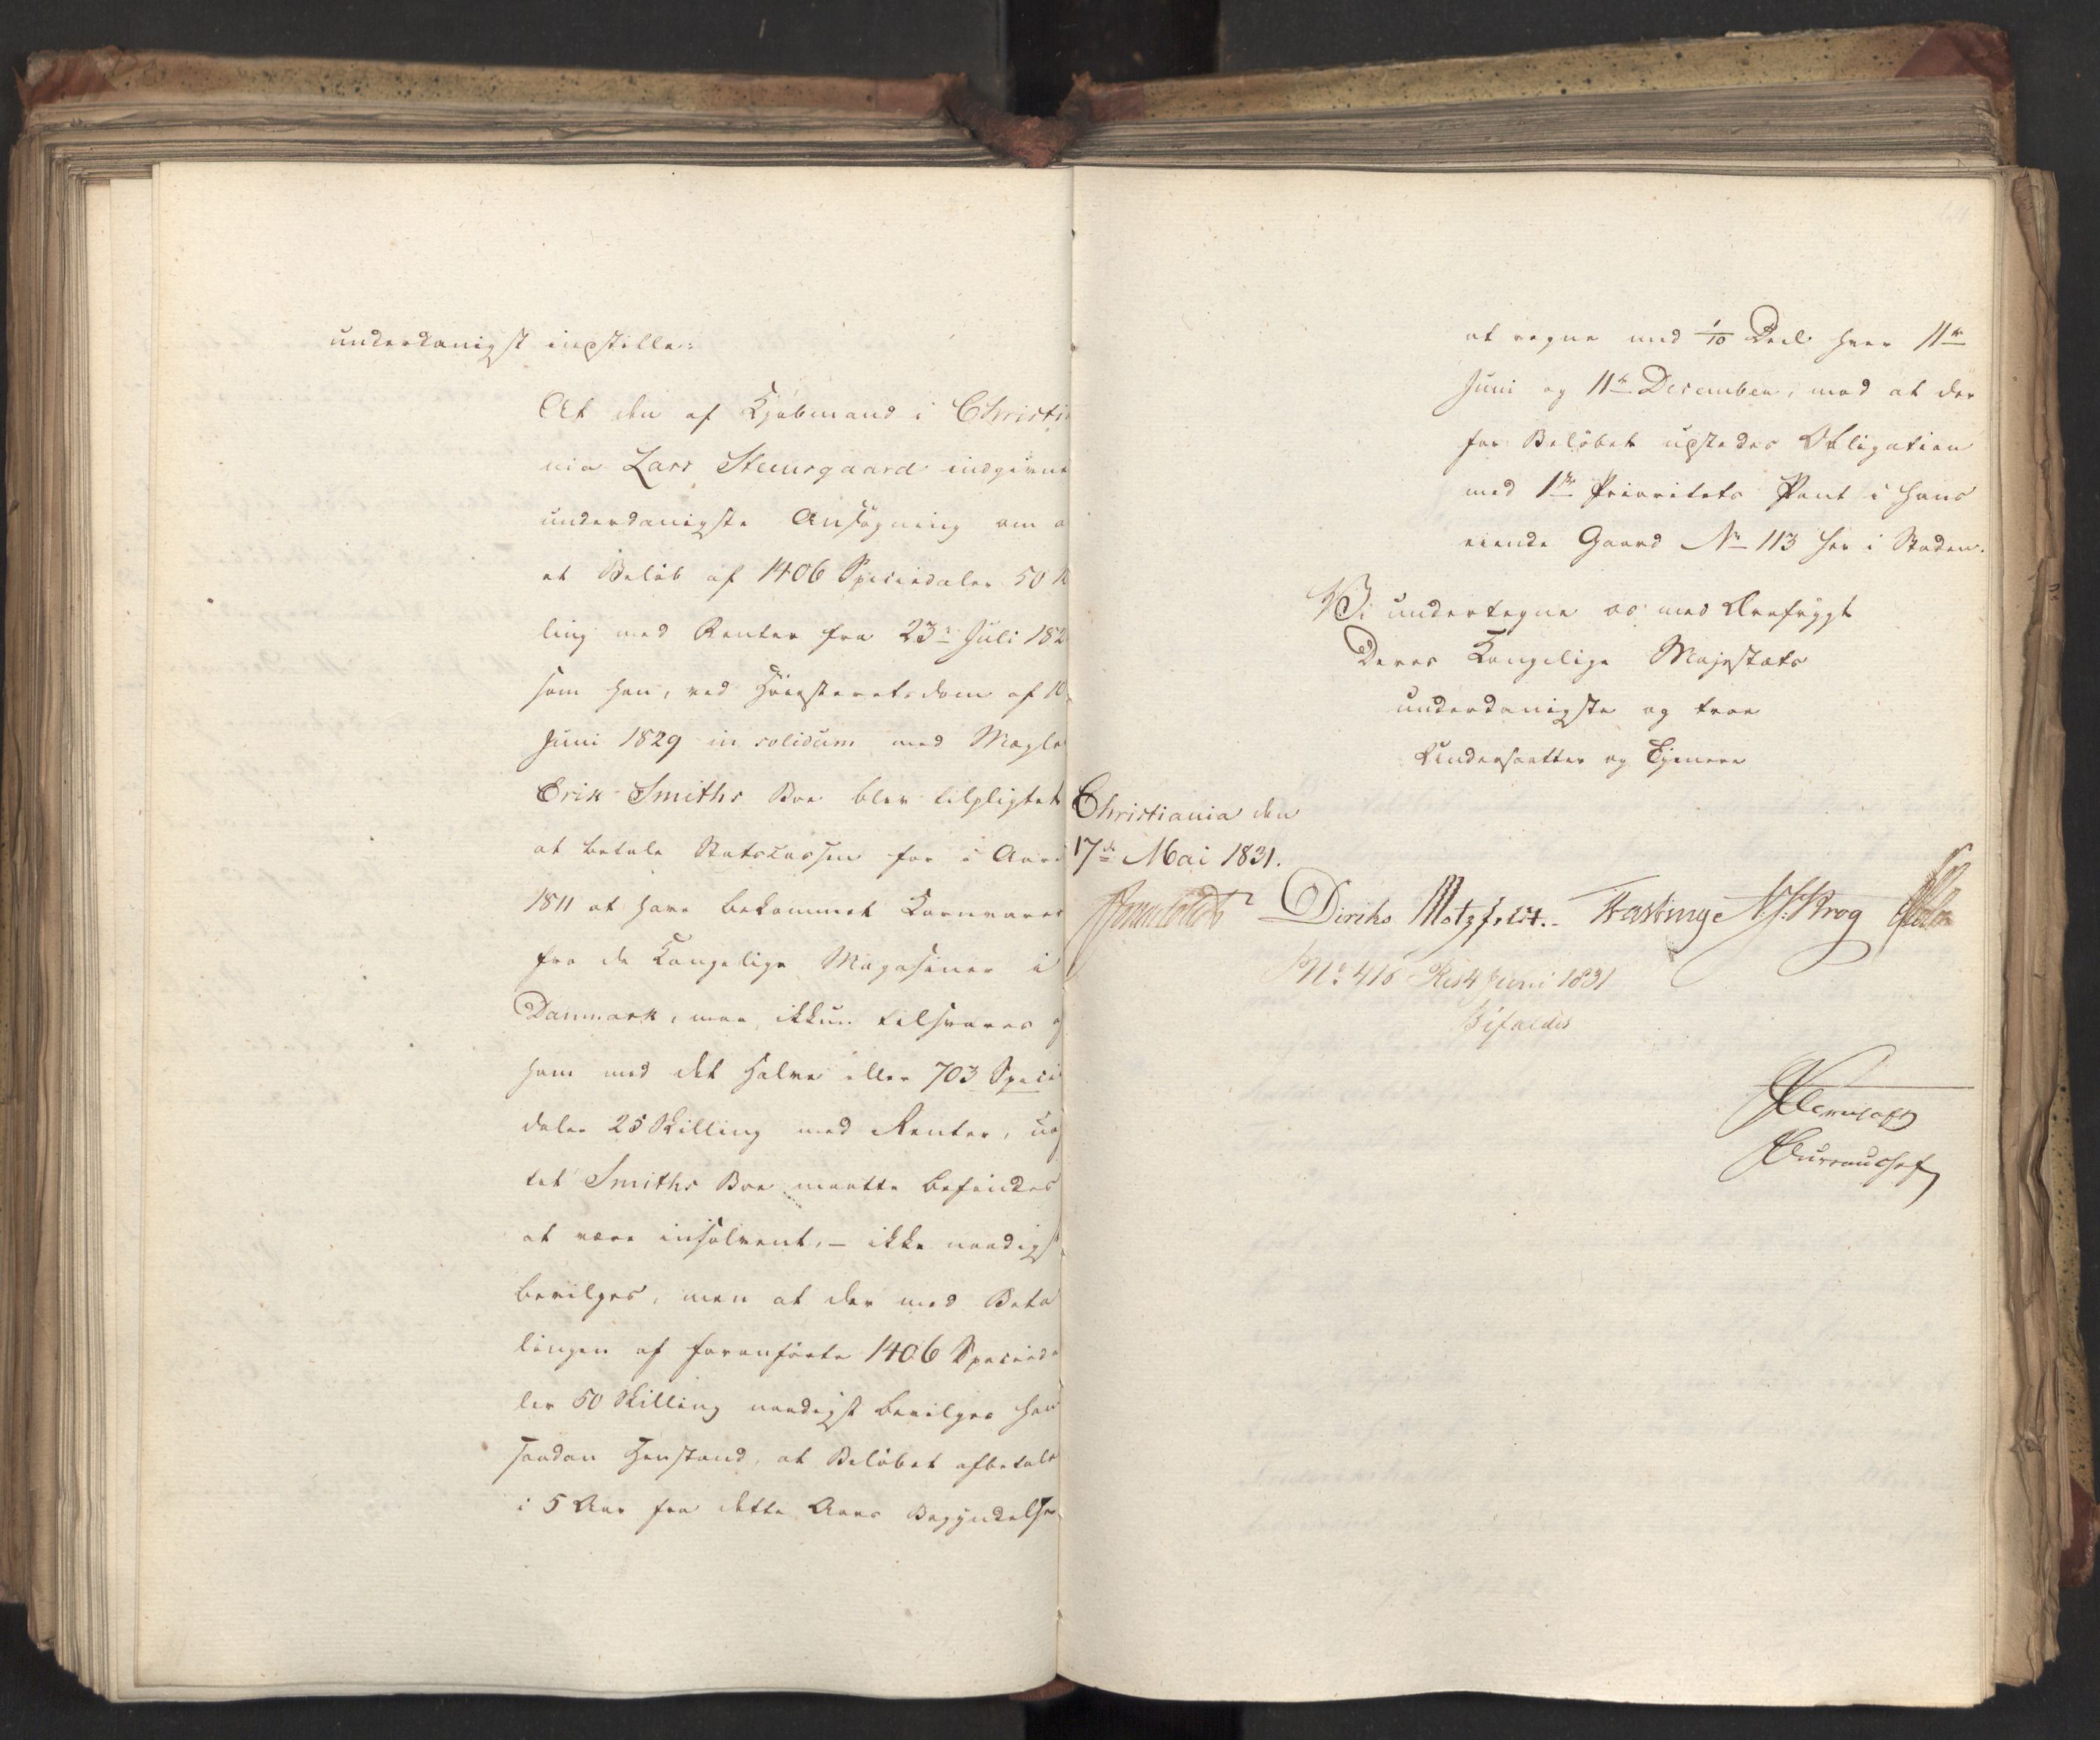 underdanigst indstille:
At den af Kjøbmand i Christia
nia Lars Steensgaard indgivne
underdanigste Ansøgning om a
et Beløb af 1406 Speciedaler 50 
ling med Renter fra 23de Juli 182
som han, ved Høiesteretsdom af 10
Juni 1829 in solidum med Mægler
Erik Smiths Boe blev tilpligtet
at betale Statskassen for i Aaret
1811 at have bekommet Kornvarer
fra de Kongelige Magasiner i
Danmark, maa ikkun tilsvares af
ham med det Halve eller 703 Specie
daler 25 Skilling med Renter, uag
tet Smiths Boe maatte befindes
at være insolvent, – ikke naadigst
bevilges, men at der med Beta
lingen af foranførte 1406 Specieda
ler 50 Skilling naadigst bevilges ham
saadan Henstand, at Beløbet afbetales
i 5 Aar fra dette Aars Begyndelse
at regne med 1/10 Deel hver 11te
Juni og 11te December, mod at der
for Beløbet udstedes Obligation
med 1ste Prioritets Pant i hans
eiende Gaard No 113 her i Staden.
Vi undertegne os med Ærefrygt
Deres Kongelige Majestæts
underdanigste og troe
Undersaatter og Tjenere
Christiania den
17de Mai 1831.
Diriks Motzfeldt. Fasting N. J. Krog
No 416 Res 4 Juni 1831
Bifaldes
Bureauchef